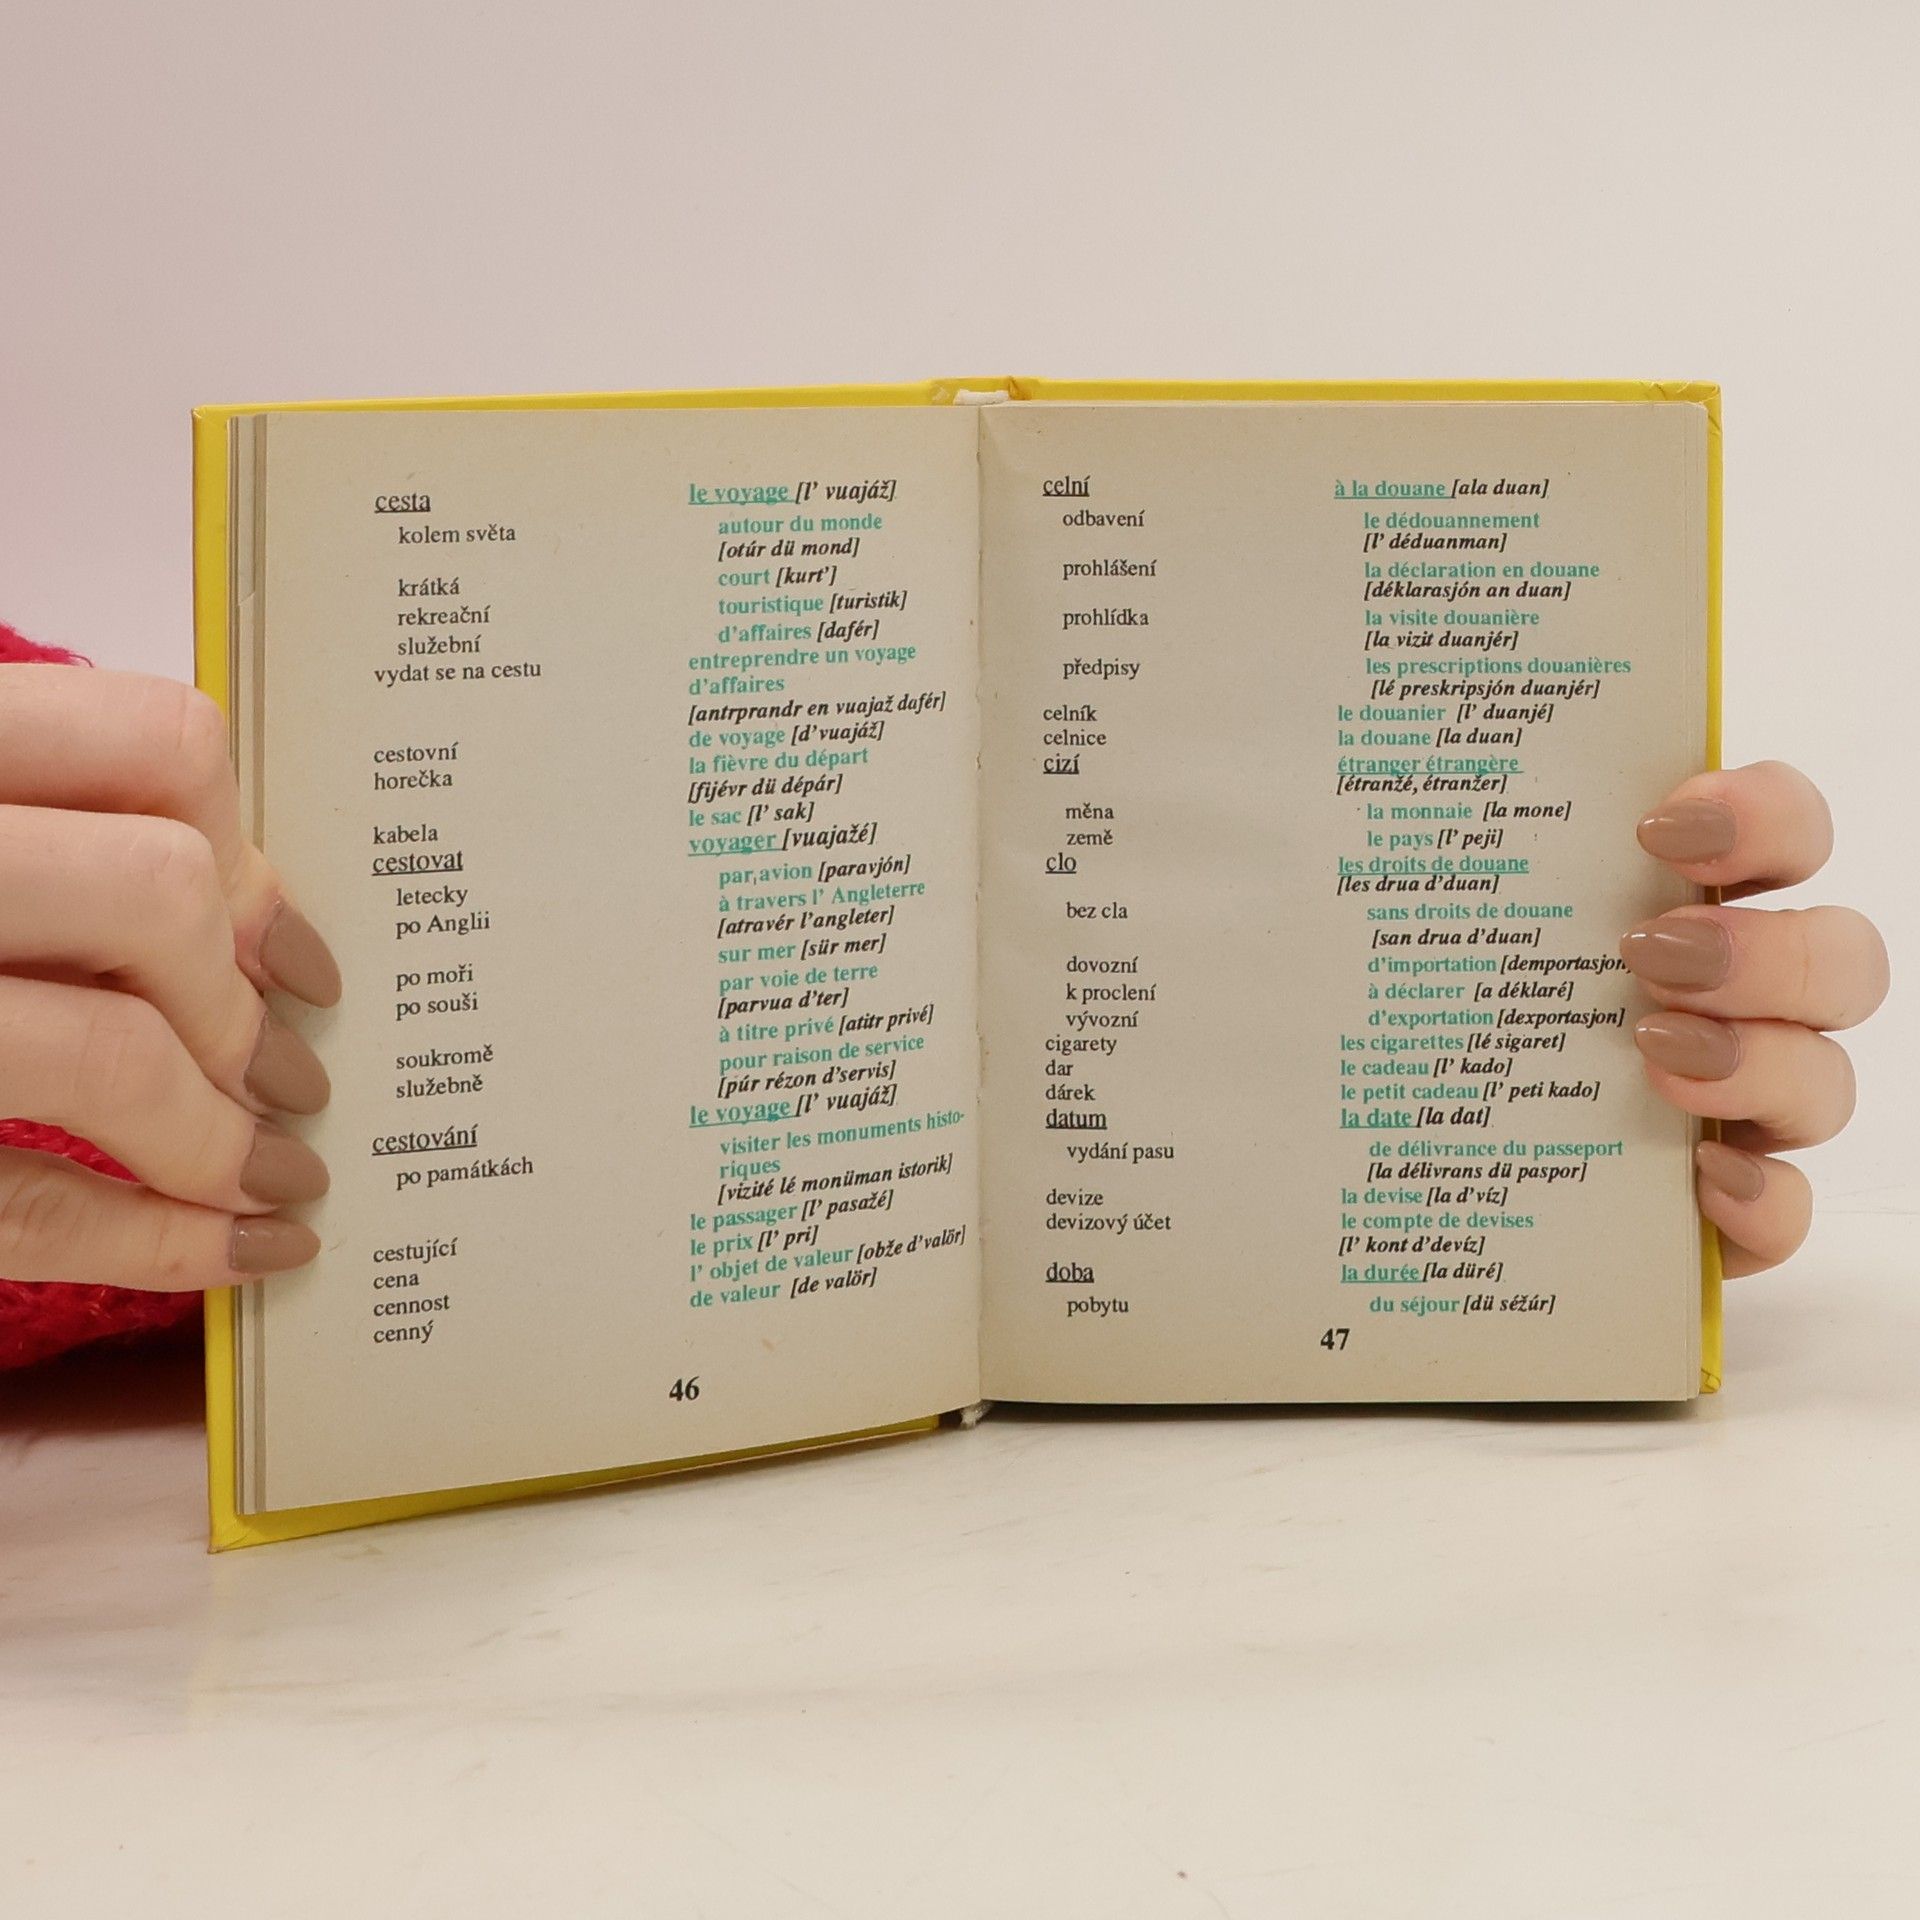 cesta
le voyage [l' vuajáž]
kolem světa
autour du monde
[otúr dü mond]
krátká
court [kurt']
rekreační
touristique [turistik]
služební
d'affaires [dafér]
vydat se na cestu
entreprendre un voyage
d'affaires
[antrprandr en vuajaž dafér]
cestovní
de voyage [d'vuajáž]
horečka
la fièvre du départ
[fijévr dü dépár]
kabela
le sac [l' sak]
cestovat
voyager [vuajažé]
letecky
par avion [paravjón]
po Anglii
à travers l' Angleterre
[atravér l'angleter]
po moři
sur mer [sür mer]
po souši
par voie de terre
[parvua d'ter]
soukromě
à titre privé [atitr privé]
služebně
pour raison de service
[púr rézon d'servis]
cestování
le voyage [l' vuajáž]
po památkách
visiter les monuments histo-
riques
[vizité lé monüman istorik]
cestující
le passager [l' pasažé]
cena
le prix [l' pri]
cennost
l' objet de valeur [obže d'valör]
cenný
de valeur [de valör]
46
celní
à la douane [ala duan]
odbavení
le dédouannement
[l' déduanman]
prohlášení
la déclaration en douane
[déklarasjón an duan]
prohlídka
la visite douanière
[la vizit duanjér]
předpisy
les prescriptions douanières
[lé preskripsjón duanjér]
celník
le douanier [l' duanjé]
celnice
la douane [la duan]
cizí
étranger étrangère
[étranžé, étranžer]
měna
la monnaie [la mone]
země
le pays [l' peji]
clo
les droits de douane
[les drua d'duan]
bez cla
sans droits de douane
[san drua d'duan]
dovozní
d'importation [demportasjon]
k proclení
à déclarer [a déklaré]
vývozní
d'exportation [dexportasjon]
cigarety
les cigarettes [lé sigaret]
dar
le cadeau [l' kado]
dárek
le petit cadeau [l' peti kado]
datum
la date [la dat]
vydání pasu
de délivrance du passeport
[la délivrans dü paspor]
devize
la devise [la d'víz]
devizový účet
le compte de devises
[l' kont d'devíz]
doba
la durée [la düré]
pobytu
du séjour [dü séžúr]
47